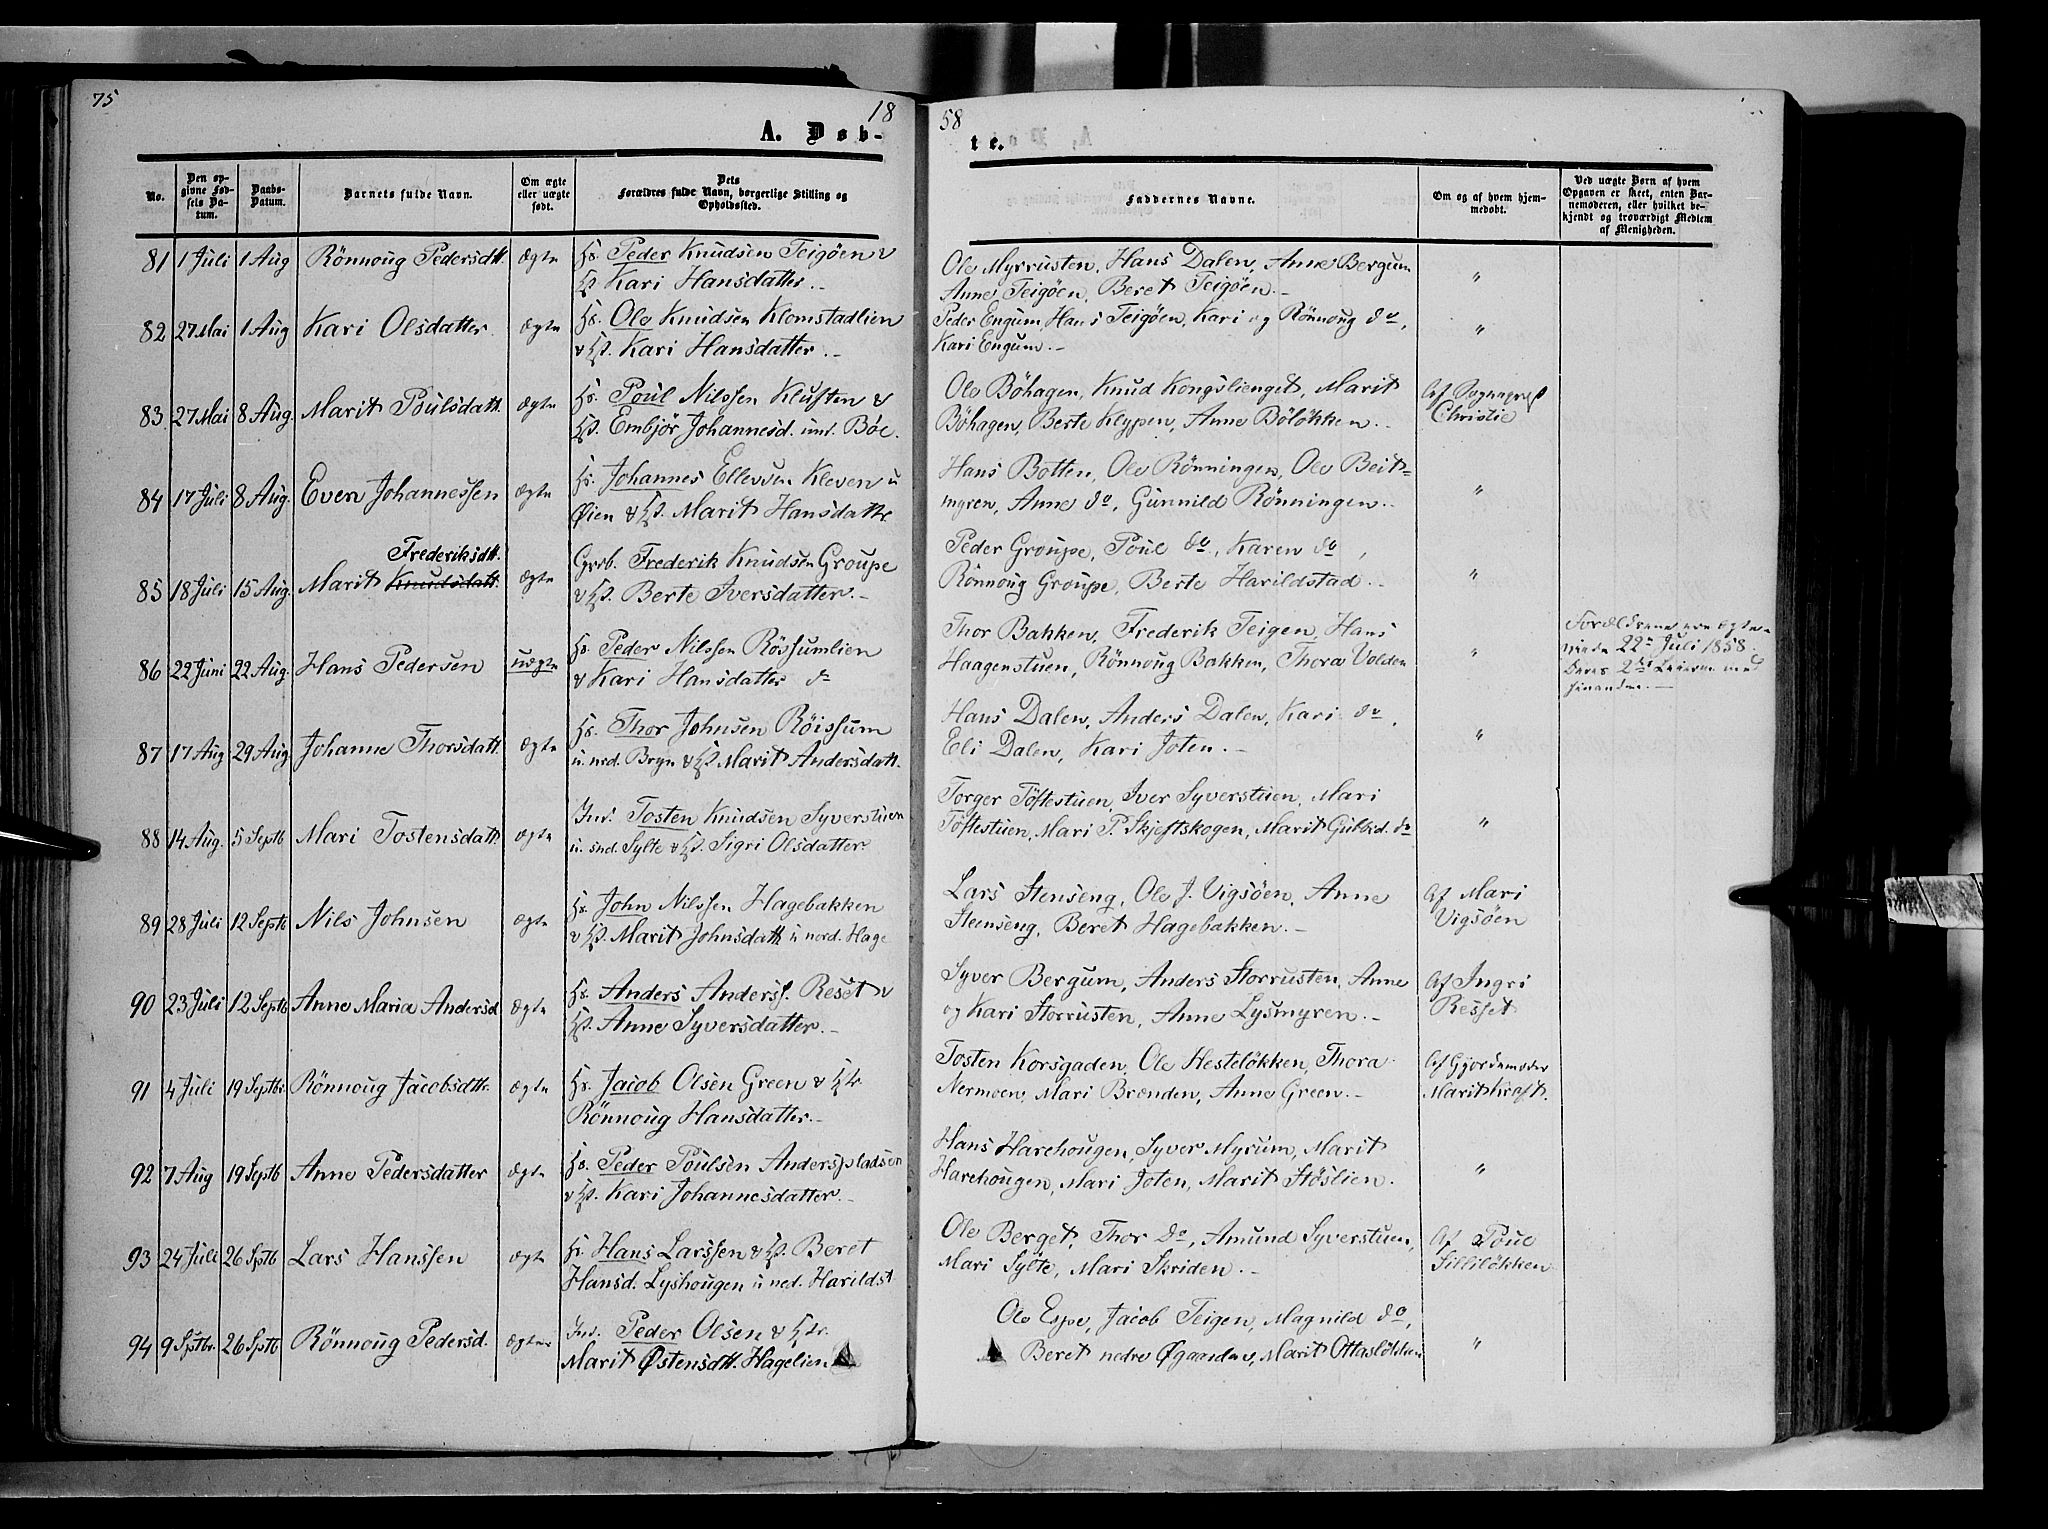 75
18
58
A. Døb-
te.
No.
Den op-
givne Fød-
sels Da-
tum.
Daabs-
Datum.
Barnets fulde Navn.
Om ægte
eller uægte
født.
Dets
Forældres fulde Navn, borgerlige Stilling og
Opholdssted.
Faddernes Navne.
Om og af hvem hjem-
medøbt.
Ved uægte Børn af hvem
Opgaven er skeet, enten Bar-
nemoderen, eller hvilket be-
kjendt og troværdigt Medlem
af Menigheden.
81 1 Juli 1 Aug Rönnoug Pedersdtt. ægte Hs. Peder Knudsen Teigöen &
Kari Hansdatter.
Ole Myrrusten, Hans Dalen, Anne Bergum
Anne Teigöen, Beret Teigöen. "
82 27 Mai 1 Aug Kari Olsdatter ægte Hs. Ole Knudsen Klomstadlien
& Hst. Kari Hansdatter.
Peder Engum, Hans Teigöen, Kari og Rönnoug do,
Kari Engum. "
83 27 Mai 8 Aug Marit Poulsdatt. ægte Hs. Poul Nilssen Kluften &
Hst. Embjör Johannesd. und. Böe.
Ole Böhagen, Knud Kongslienget, Marit
Böhagen, Berte Klypen, Anne Böløkken.
Af Sognepræst
Christie
84 17 Juli 8 Aug. Even Johannessen ægte Hs. Johannes Ellevsen Kleven u
Øien & Hst. Marit Hansdatter
Hans Botten, Ole Rönningen, Ole Beit-
myren, Anne do, Gunnild Rönningen. "
85 18 Juli 15 Aug. Marit Knudsdatt. Frederiksdtt. ægte Grb. Frederik Knudsen Groupe
& Hst. Berte Iversdatter.
Peder Groupe, Poul do, Karen do,
Rönnoug Groupe, Berte Harildstad. "
86 22 Juni 22 Aug. Hans Pedersen uægte Hs. Peder Nilssen Rössumlien
& Kari Hansdatter do
Thor Bakken, Frederik Teigen, Hans
Haagenstuen, Rönnoug Bakken, Thora Volden "
Forældrene ere ægte-
viede 22de Juli 1858.
Deres 2det Leierm. med
hinanden.
87 17 Aug 29 Aug. Johanne Thorsdatt. ægte Hs. Thor Johnsen Röissum
u. nrd. Bryn & Hst Marit Andersdatt.
Hans Dalen, Anders Dalen, Kari do,
Eli Dalen, Kari Joten. "
88 14 Aug. 5 Septb Mari Tostensdatt. ægte Ind. Tosten Knudsen Syverstuen
u. snd. Sylte & Hst. Sigri Olsdatter
Torger Töftestuen, Iver Syverstuen, Mari
Töftestuen, Mari P. Skjeftskogen, Marit Gulbd. do "
89 28 Juli 12 Septb Nils Johnsen ægte Hs. John Nilssen Hagebakken
& Hst. Marit Johnsdatt u nord. Hage
Lars Stenseng, Ole J. Vigsöen, Anne
Stenseng, Beret Hagebakken.
Af Mari
Vigsöen
90 23 Juli 12 Septb Anne Maria Andersd ægte Hs. Anders Anderss. Reset &
Hst. Anne Syversdatter.
Syver Bergum, Anders Storrusten, Anne
og Kari Storrusten, Anne Lysmyren.
Af Ingri
Resset
91 4 Juli 19 Septbr. Rönnoug Jacobsdtt. ægte Hs. Jacob Olsen Green & Hst.
Rönnoug Hansdatter.
Tosten Korsgaden, Ole Hesteløkken, Thora
Nermoen, Mari Brænden, Anne Green.
Af Gjordemoder
Marit Kraft.
92 7 Aug 19 Septb Anne Pedersdatter ægte Hs. Peder Poulsen Anderspladsen
& Hst. Kari Johannesdatter.
Hans Harehougen, Syver Myrum, Marit
Harehougen, Mari Joten, Marit Stöslien. "
93 24 Juli 26 Sptb Lars Hanssen ægte Hs. Hans Larssen & Hst. Beret
Hansd. Lyshougen u ned. Harildst.
Ole Berget, Thor do, Amund Syverstuen,
Mari Sylte, Mari Skriden.
Af Poul
Silliløkken
94 9 Sptbr. 26 Sptb Rönnoug Pedersd. ægte Ind. Peder Olsen & Hst.
Marit Østensdtt. Hagelien
Ole Espe, Jacob Teigen, Magnild do,
Beret nedre Øgaarden, Marit Ottasløkken "